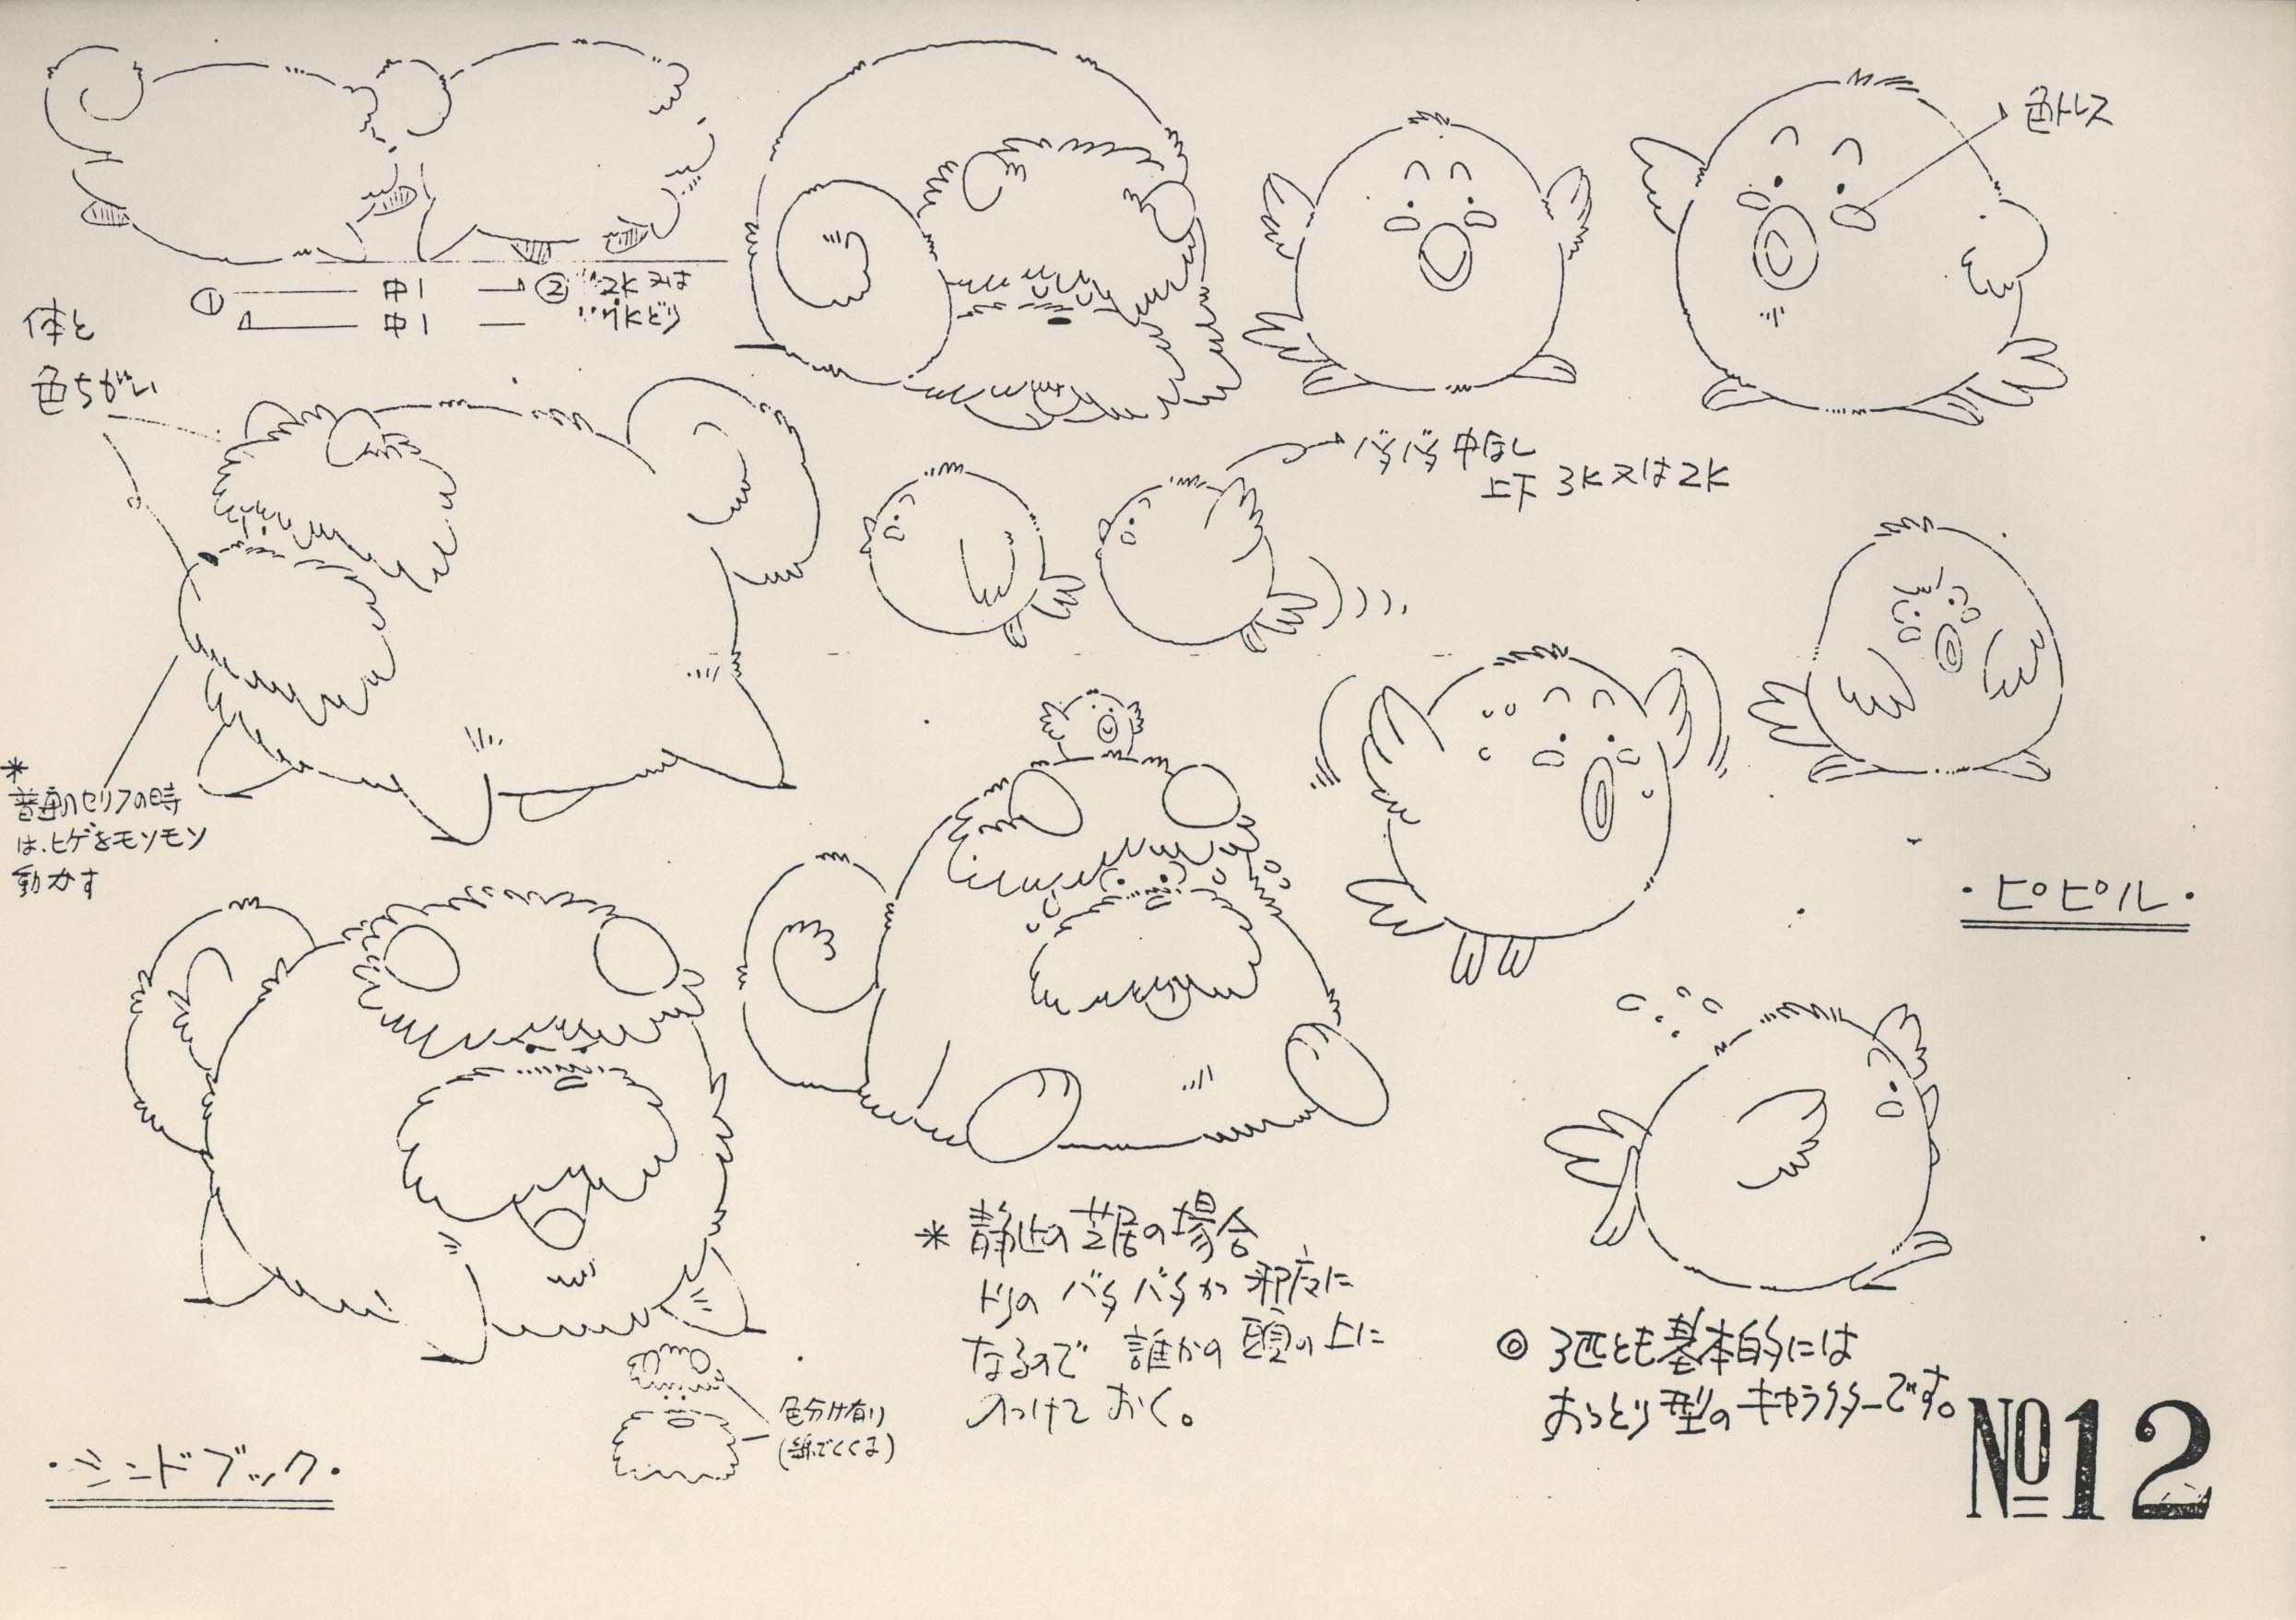 色トレス
① 中1 ② 2K又は
中1
体と
色ちがい
バタバタ中なし
上下 3K又は2K
*
普通のセリフの時
は、ヒゲをモソモソ
動かす
・ピピル・
* 静止の芝居の場合
トリの バタバタが 邪魔に
なるので 誰かの 頭の上に
のっけて おく。
◎ 3匹とも基本的には
おっとり型のキャラクターです。
色分け有り
・シンドブック・
No12